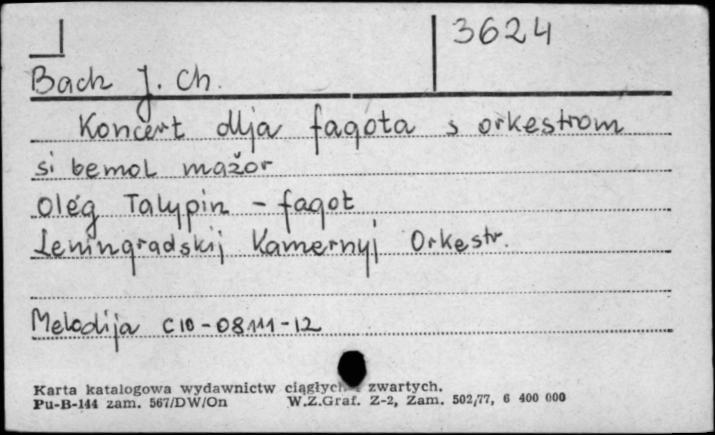 3624
Bach J. Ch.
Koncert dlja fagota s orkestrom
si bemol mažor
Oleg Talypin - fagot
Leningradskij Kamernyj Orkestr.
Melodija C10-08111-12
Karta katalogowa wydawnictw ciągłych zwartych.
Pu-B-144 zam. 567/DW/On W.Z.Graf. Z-2, Zam. 502/77, 6 400 000